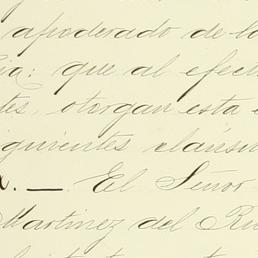 apoderado de lo
ia: que al efect
tes, otorgan esta e
iguientes cláusu
a. — El Señor
Martinez del Ru